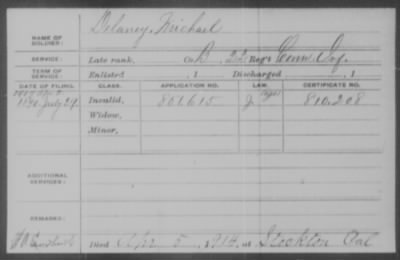 NAME OF SOLDIER: Delaney, Michael
SERVICE: Late rank, Co. D, 22 Reg't Conn. Inf.
TERM OF SERVICE: Enlisted , 1 Discharged , 1
DATE OF FILING. CLASS. APPLICATION NO. LAW. CERTIFICATE NO.
1890 July 29. Invalid, 801.615 J 810.208
Widow,
Minor,
ADDITIONAL SERVICES:
REMARKS:
Died Apr 5, 1914, at Stockton Cal